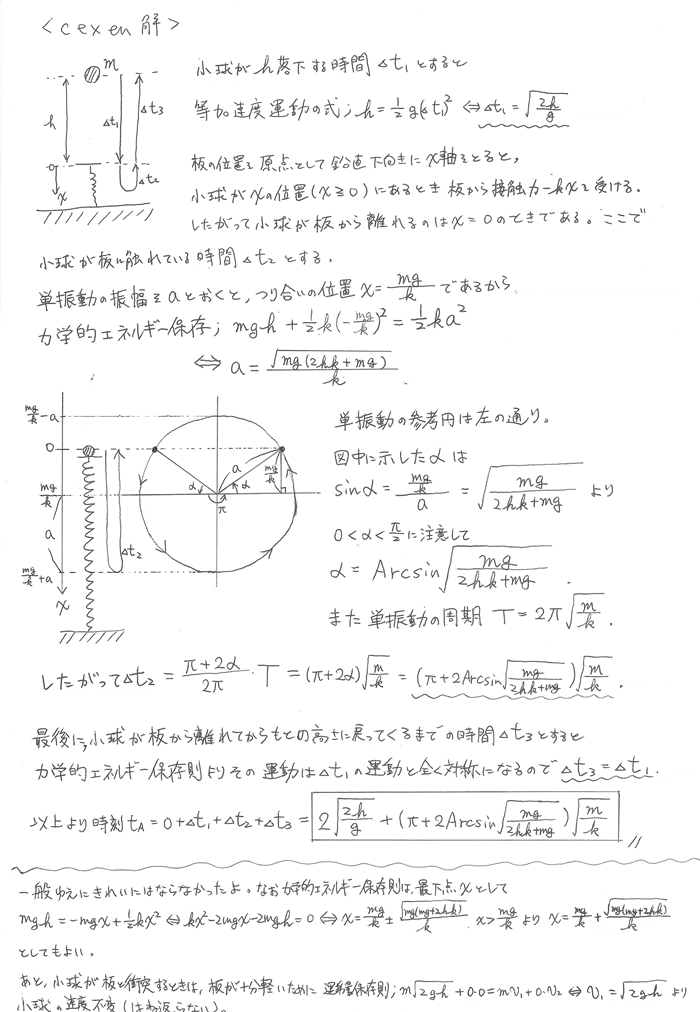 ＜cexen 解＞
m
h
Δt₁
Δt₃
0
x
Δt₂
小球がh落下する時間Δt₁とすると
等加速度運動の式; h=½g(Δt₁)² ⇔ Δt₁=√(2h/g)
板の位置を原点として鉛直下向きにx軸をとると,
小球がxの位置(x≧0)にあるとき板から接触力-kxを受ける.
したがって小球が板から離れるのはx=0のときである。ここで
小球が板に触れている時間Δt₂とする.
単振動の振幅をaとおくと,つり合いの位置x=mg/kであるから
力学的エネルギー保存; mgh+½k(-mg/k)²=½ka²
⇔ a=√(mg(2hk+mg))/k
mg/k-a
0
mg/k
a
mg/k+a
x
Δt₂
a
α
α
mg/k
π
単振動の参考円は左の通り。
図中に示したαは
sinα=(mg/k)/a=√(mg/(2hk+mg)) より
0<α<π/2に注意して
α=Arcsin√(mg/(2hk+mg)).
また単振動の周期 T=2π√(m/k).
したがってΔt₂=(π+2α)/2π・T=(π+2α)√(m/k)=(π+2Arcsin√(mg/(2hk+mg)))√(m/k).
最後に,小球が板から離れてからもとの高さに戻ってくるまでの時間Δt₃とすると
力学的エネルギー保存則よりその運動はΔt₁の運動と全く対称になるのでΔt₃=Δt₁.
以上より時刻tA=0+Δt₁+Δt₂+Δt₃=2√(2h/g)+(π+2Arcsin√(mg/(2hk+mg)))√(m/k) //
一般ゆえにきれいにはならなかったよ。なお力学的エネルギー保存則は,最下点xとして
mgh=-mgx+½kx² ⇔ kx²-2mgx-2mgh=0 ⇔ x=mg/k±√(mg(mg+2hk))/k. x>mg/k より x=mg/k+√(mg(mg+2hk))/k
としてもよい。
あと,小球が板と衝突するときは,板が十分軽いために 運動量保存則; m√(2gh)+0・0=mv₁+0・v₂ ⇔ v₁=√(2gh) より
小球の速度不変(はね返らない)。